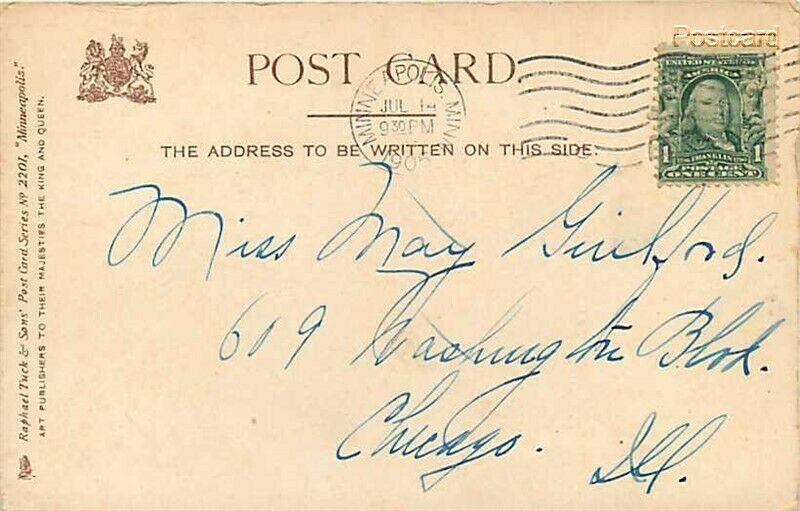 Postcard
POST CARD.
MINNEAPOLIS, MINN.
JUL 14
9 30 PM
1905
UNITED STATES OF AMERICA
FRANKLIN
1 1
ONE CENT
THE ADDRESS TO BE WRITTEN ON THIS SIDE.
Miss May Guilford.
609 Washington Blvd.
Chicago.
Ill.
Raphael Tuck & Sons' Post Card Series Nº 2201, "Minneapolis."
ART PUBLISHERS TO THEIR MAJESTIES THE KING AND QUEEN.